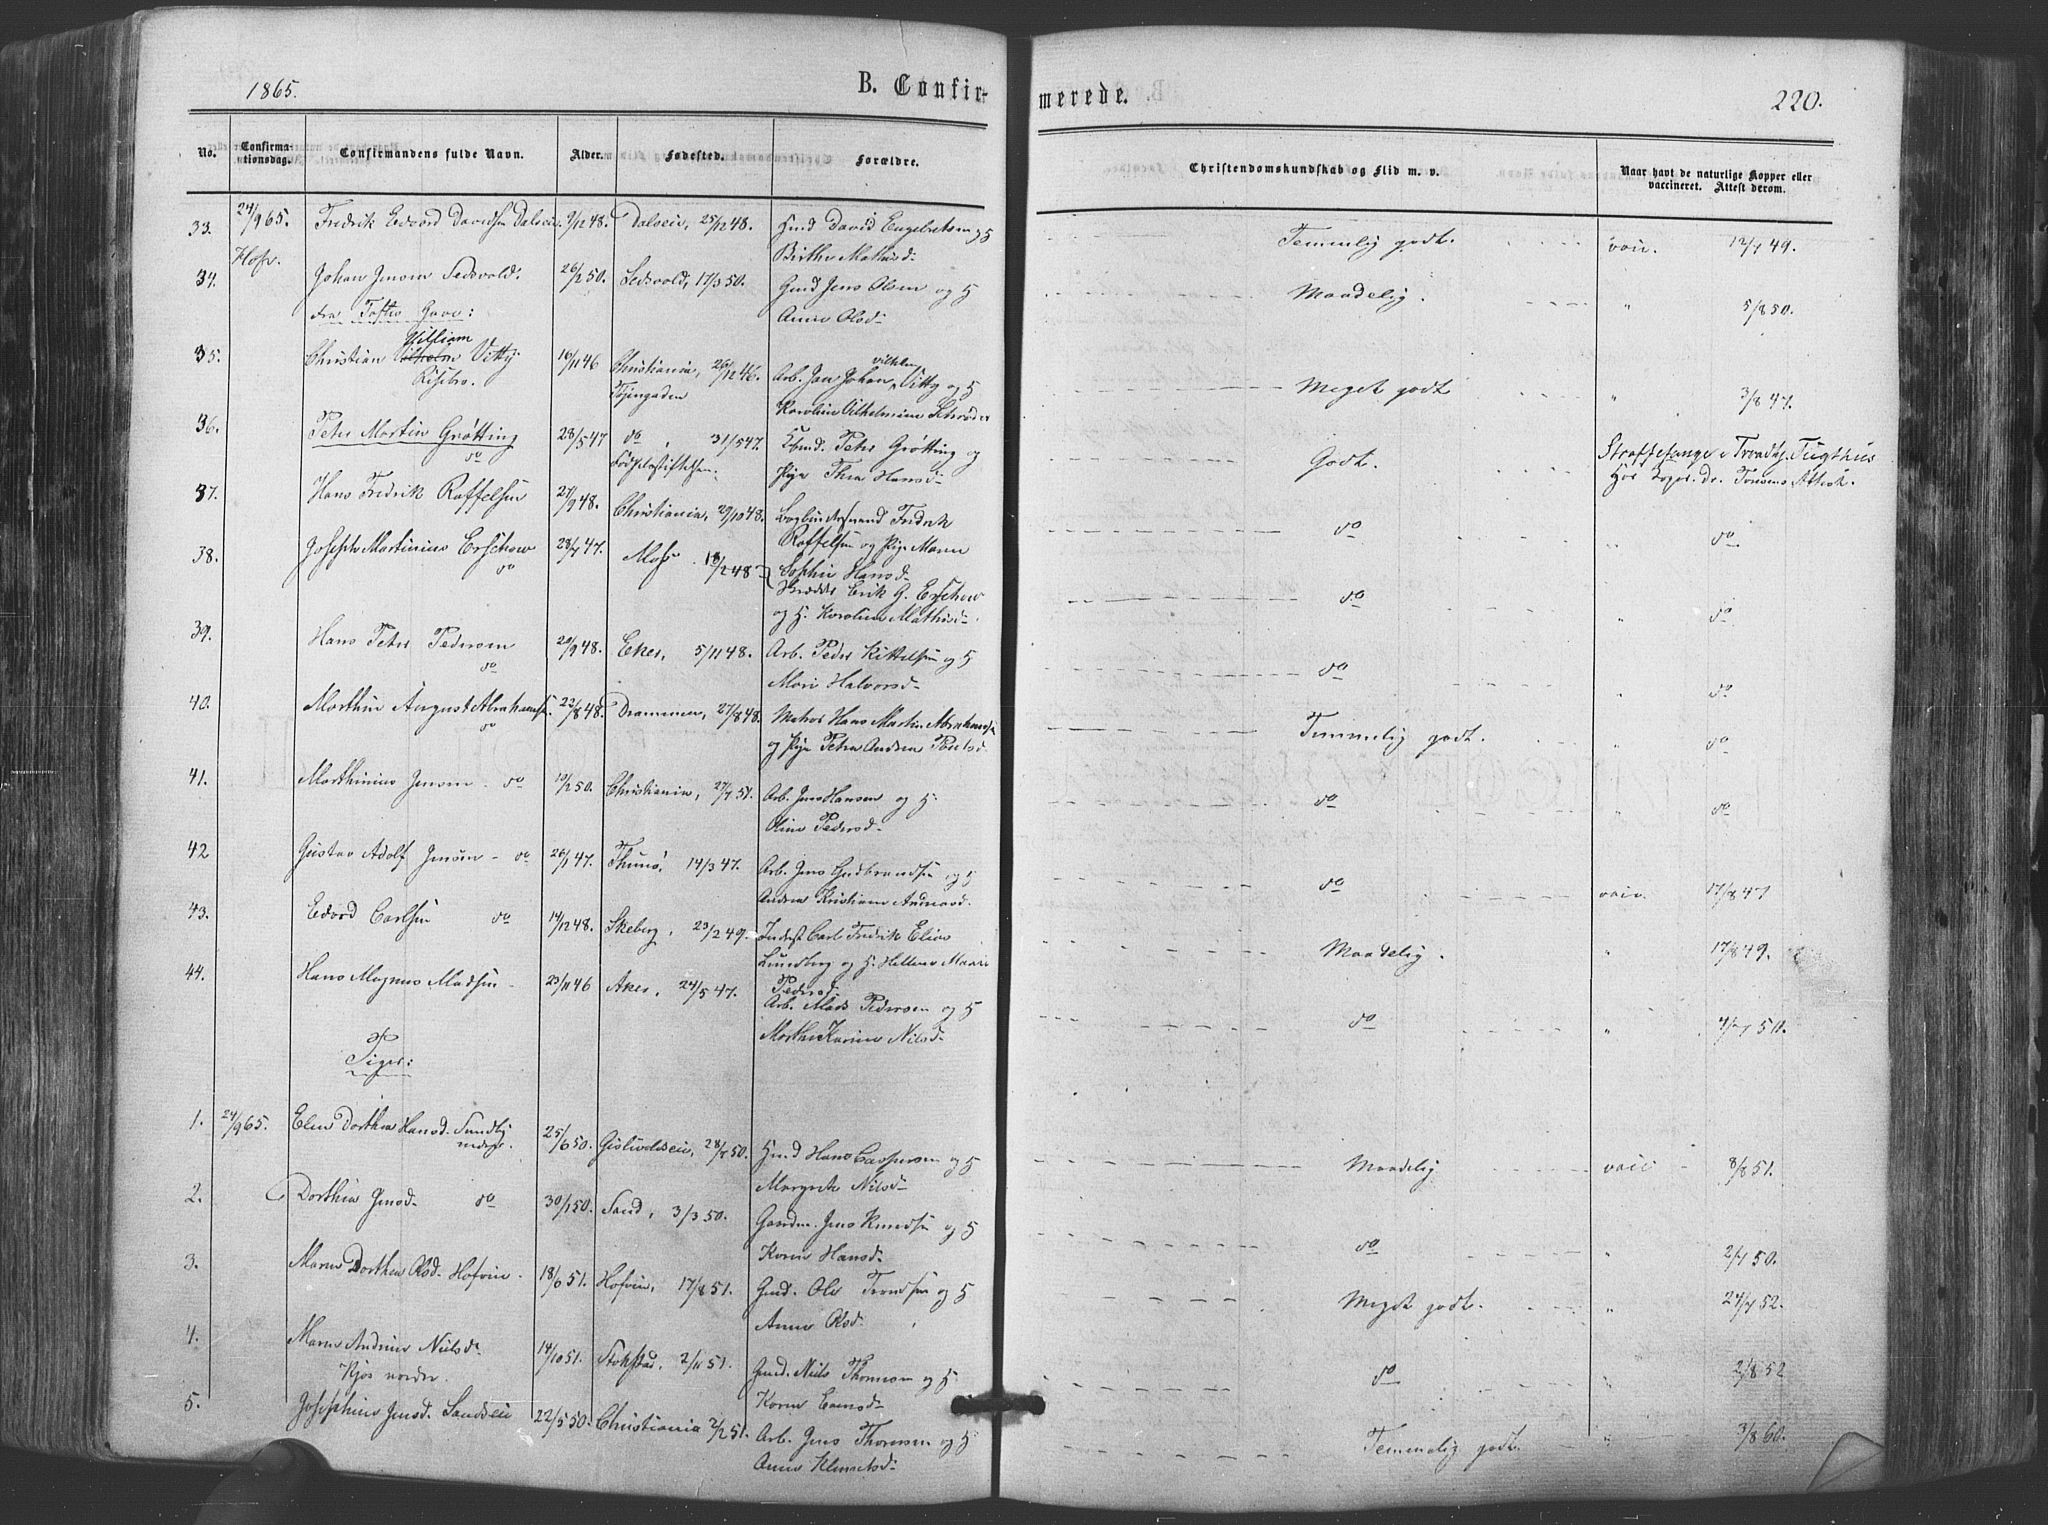 1865.
B. Confir-
merede.
220.
No.
Confirma-
tionsdag.
Confirmandens fulde Navn.
Alder.
Fødested.
Forældre.
Christendomskundskab og Flid m. v.
Naar havt de naturlige Kopper eller
vaccineret. Attest derom.
33. 24/9 65. Fredrik Edvard Davidsen Dalseie. 9/12 48. Dalseie, 25/12 48. Hmd David Engebretsen og H
Temmelig godt. vaii. 12/7 49.
Hof. Birthe Mathisd.
34. Johan Jensen Sedsvold. 26/2 50. Sedsvold, 17/3 50. Gmd Jens Olsen og H
Maadelig. " 5/8 50.
Fra Toftes Gave: Anne Olsd.
William
35. Christian Vilhelm Vitty 16/11 46 Christiania, 26/12 46. Arb. Jan Johan Vilhelm Vitty og H
Meget godt " 3/8 47.
Risebro. Tøiengaden Karoline Vilhelmine Schrøder
36. Peter Martin Grøtting 28/5 47 do, 31/5 47. Peter Grøtting og
Godt. Straffefange i Trondhj. Tugthus
do Fødselsstiftelsen. Pige Thea Hansd.
37. Hans Fredrik Raffelsen 27/9 48. Christiania, 29/10 48. Bogbindersvend Fredrik
do " do
Raffelsen og Pige Maren
Sophie Hansd.
38. Joseph Martinius Erschow 28/7 47. Moss. 18/2 48 Skrædder Erik G. Erschow
do " do
do og H. Karoline Mathisd.
39. Hans Peter Pedersen 20/9 48. Eker, 5/11 48. Arb. Peder Kittelsen og H
do " do
do Mari Halvorsd.
40. Marthin August Abrahamsen 22/8 48. Drammen, 27/8 48. Matros Hans Martin Abrahamsen
Temmelig godt. " do
do og Pige Petra Andrea Poulsd.
41. Marthinius Jensen - do 10/2 50. Christiania, 27/7 51. Arb. Jens Hansen og H.
do " do
Oline Pedersd.
42 Gustav Adolf Jensen - do 26/1 47. Thunø, 14/3 47. Arb. Jens Gudbrandsen og H
do vaii. 17/8 47
Andrea Kristiane
43. Edvard Carlsen do 14/12 48. Skeberg, 23/2 49. Inderst Carl Fredrik Elias
Maadelig. " 17/8 49.
Lundberg og H. Hellene Marie
Pedersd.
44. Hans Magnus Madsen - 23/11 46 Aker, 24/5 47. Arb. Mads Pedersen og H
do " 4/7 50.
Marthe Karine Nilsd.
Piger:
1. 24/9 65. Elen Dorthea Hansd. Sundby 25/6 50. 28/7 50. Hmd Hans Caspersen og H
Maadelig vaii 8/8 51.
Margrete Nilsd.
2. Dorthea Jensd. do 30/1 50. Sand, 3/3 50. Gaardm. Jens Knudsen og H
do " 2/7 50.
Karen Hansd.
3. Maren Dorthea Olsd. Hofvin. 18/6 51. Hofvin, 17/8 51. Gmd. Ole Trondsen og H
Meget godt. " 24/7 52.
Anne Olsd.
4. Maren Andrine Nielsd. 14/10 51. Stokstad, 2/11 51. Gmd. Niels Thomesen og H.
do " 2/8 52
Kjos nordre. Karen Evensd.
5. Josephine Jensd. Sandseie 22/5 50. Christiania 2/2 51. Arb. Jens Thoresen og H
Temmelig godt. " 3/8 60.
Anne Klemetsd.